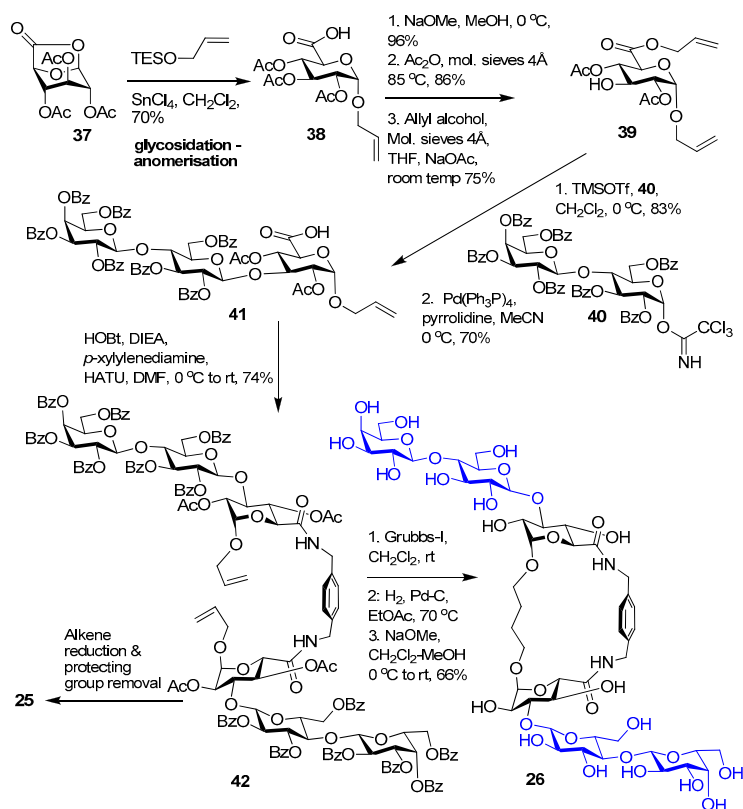 O
O
AcO
O
OAc
OAc
37
TESO
SnCl4, CH2Cl2,
70%
glycosidation -
anomerisation
O
OH
AcO
O
AcO
AcO
O
38
1. NaOMe, MeOH, 0 °C,
96%
2. Ac2O, mol. sieves 4Å
85 °C, 86%
3. Allyl alcohol,
Mol. sieves 4Å,
THF, NaOAc,
room temp 75%
O
O
AcO
O
HO
AcO
O
39
1. TMSOTf, 40,
CH2Cl2, 0 °C, 83%
2. Pd(Ph3P)4,
pyrrolidine, MeCN
0 °C, 70%
BzO
OBz
O
BzO
OBz
O
OBz
O
BzO
BzO
O
CCl3
NH
40
BzO
OBz
O
BzO
OBz
O
OBz
O
BzO
BzO
O
O
OH
AcO
O
AcO
O
41
HOBt, DIEA,
p-xylylenediamine,
HATU, DMF, 0 °C to rt, 74%
BzO
OBz
O
BzO
OBz
O
OBz
O
BzO
BzO
O
AcO
O
OAc
O
O
HN
HN
O
O
O
OAc
AcO
O
O
OBz
BzO
BzO
O
O
OBz
BzO
OBz
OBz
42
Alkene
reduction &
protecting
group removal
25
1. Grubbs-I,
CH2Cl2, rt
2: H2, Pd-C,
EtOAc, 70 °C
3. NaOMe,
CH2Cl2-MeOH
0 °C to rt, 66%
OH
OH
O
HO
OH
O
OH
O
HO
OH
O
HO
O
OH
O
O
HN
HN
O
O
O
OH
HO
O
O
OH
HO
HO
O
O
OH
HO
HO
OH
26